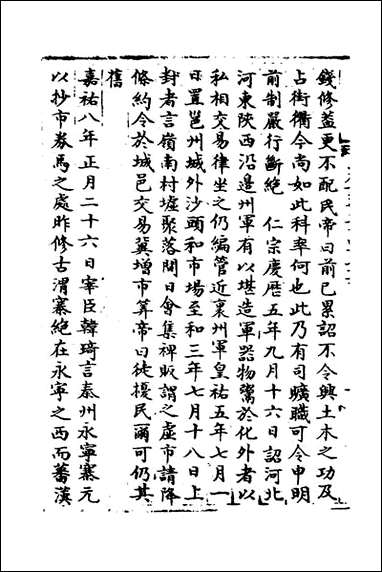 錢修蓋更不配民帝曰前已累詔不令興土木之功及
占街衢今尚如此科率何也此乃有司曠職可令申明
前制嚴行斷絕　仁宗慶曆五年九月十六日詔河北
河東陝西沿邊州軍有以堪造軍器物鬻於化外者以
私相交易律坐之仍編管近襄州軍皇祐五年七月一
日置邕州城外沙頭和市場至和三年七月十八日上
封者言嶺南村墟聚落間日會集裨販謂之虛市請降
條約令於城邑交易冀增市筭帝曰徒擾民爾可仍其
舊
嘉祐八年正月二十六日宰臣韓琦言秦州永寧寨元
以抄市券馬之處昨修古渭寨絕在永寧之西而蕃漢